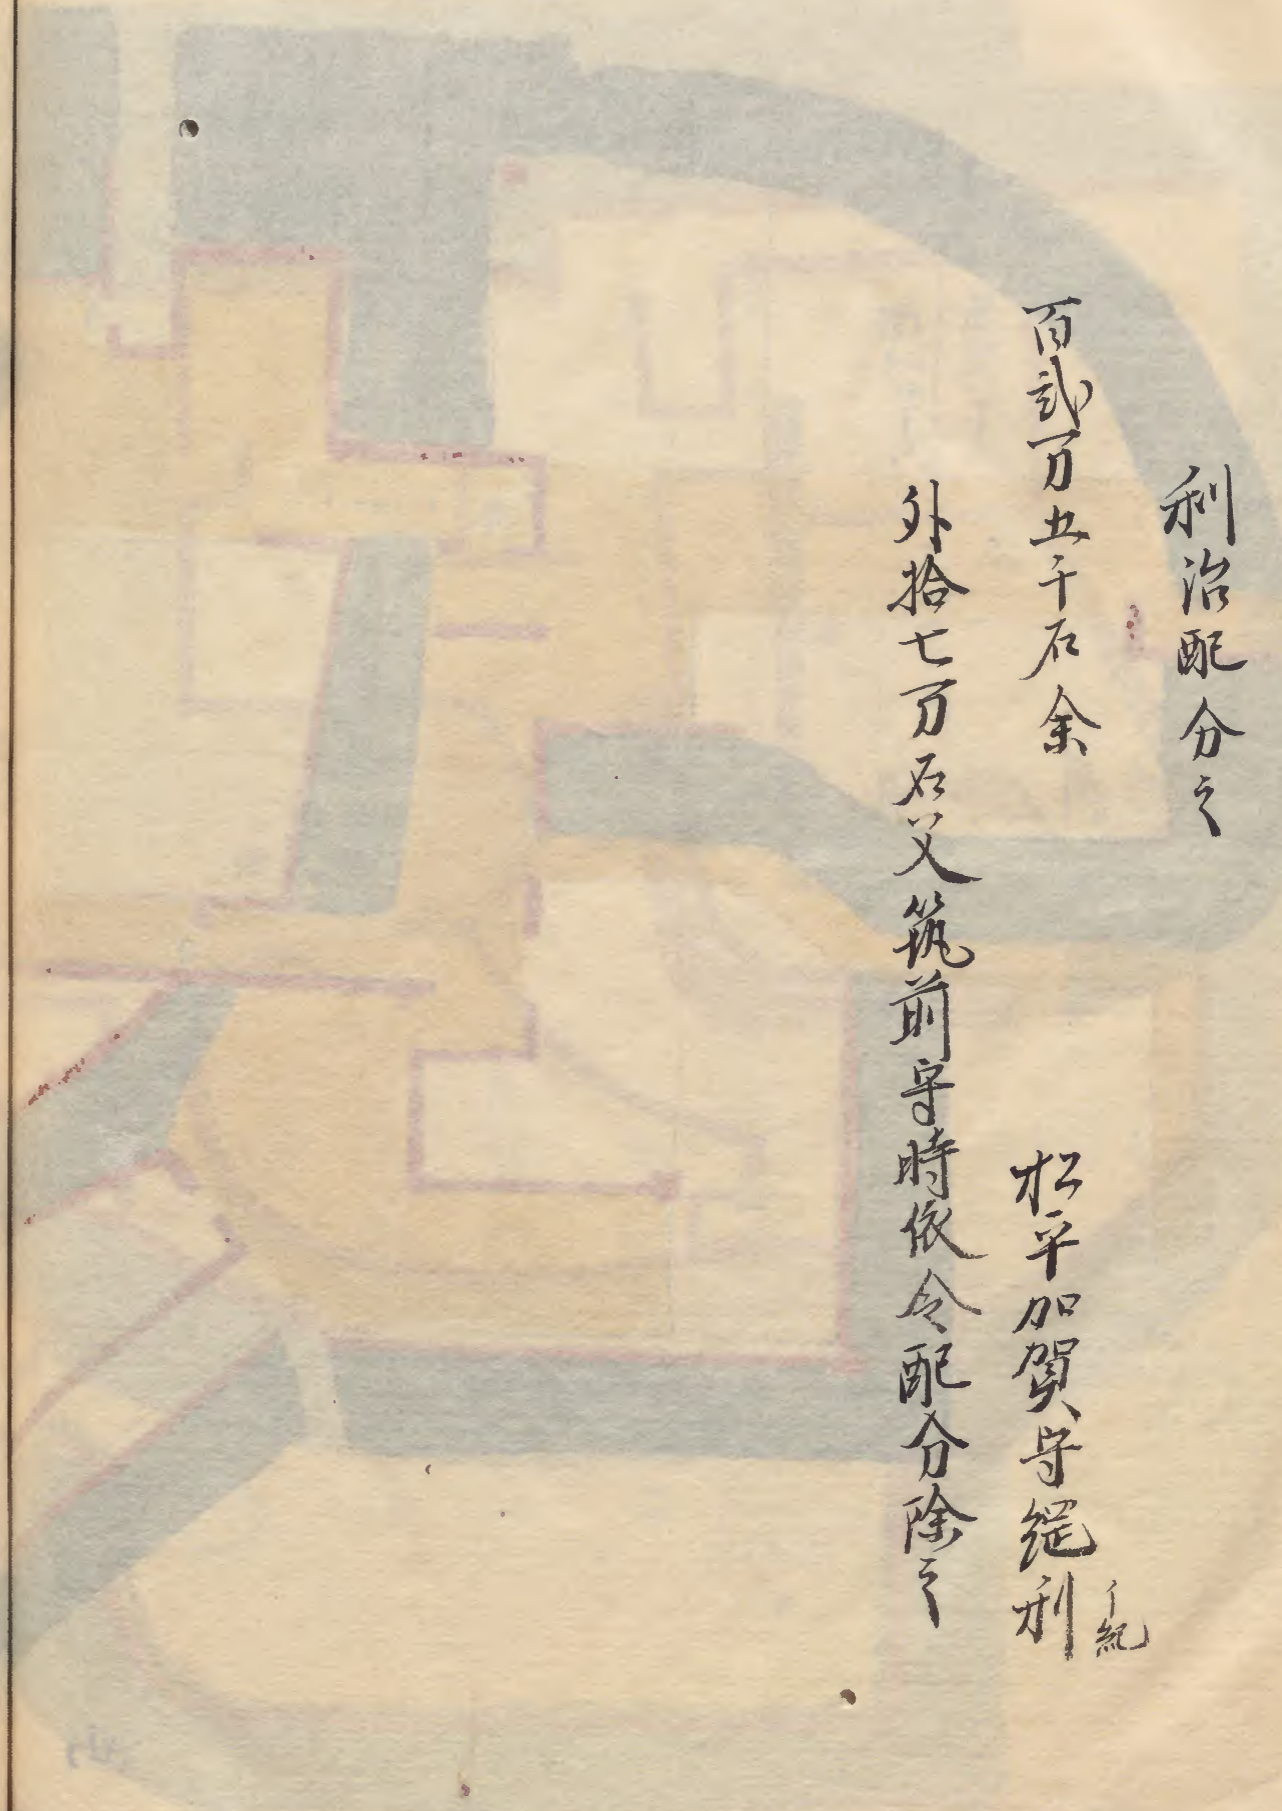 利治配分之
百弐万五千石余
松平加賀守綱利
紀
外拾七万石父筑前守時依令配分除之